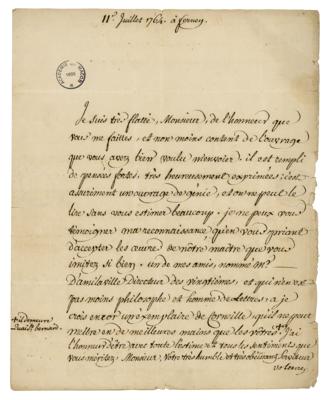 11e. Juillet 1764. à ferney
ACADEMIE DE MACON
Je suis très flatté, Monsieur, de l'honneur que
vous me faittes, et non moins content de l'ouvrage
que vous avez bien voulu m'envoier. il est rempli
de pensées fortes, très heureusement exprimées; c'est
assurément un ouvrage de génie, et on ne peut le
lire sans vous estimer beaucoup. je ne peux vous
témoigner ma reconnaissance qu'en vous priant
d'accepter les œuvre de nôtre maître que vous
imitez si bien. un de mes amis, nommé Mr.
D'amilaville Directeur des vingtièmes, et qui n'en est
pas moins philosophe et homme de Lettres, a je
crois encor un exemplaire de Corneille qu'il ne peut
mettre en de meilleures mains que les vôtres. + j'ai
+ il demeure
quai st. bernard.
l'honneur d'être avec toute l'estime et tous les sentiments que
vous méritez. Monsieur. Vôtre très humble et très obéissant serviteur
voltaire